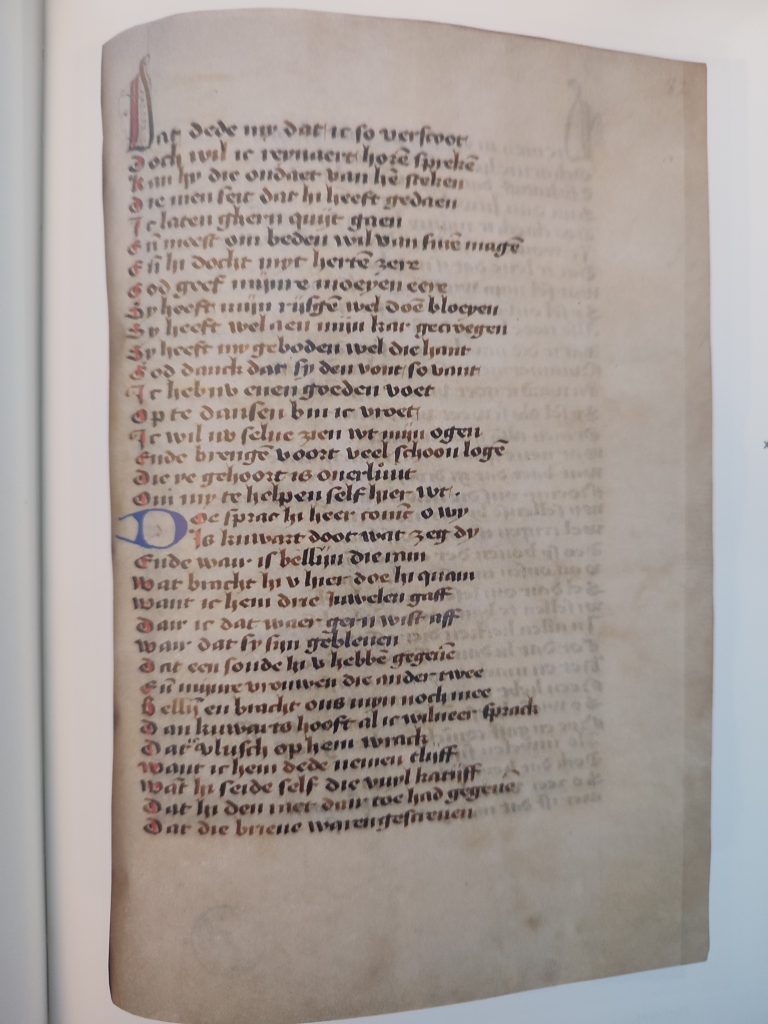 Dat dede my dat ic so verscoot
Doch wil ic reynaert horē sprekē
Kan hy die ondaet van hē steken
Die men seit dat hi heeft gedaen
Ic laten ghern quijt gaen
Eñ meest om beden wil van sinē magē
Eñ hi docht myt hertē zere
God geef mijnre moeyen eere
Sy heeft mijn rijsgē wel doē bloeyen
Sy heeft wel aen mijn kar gecroegen
Sy heeft my geboden wel die hant
God danck dat sy den vont so vant
Ic heb nv enen goeden voet
Op te dansen bin ic vroet
Ic wil nv selue zien wt mijn ogen
Ende brengē voort veel schoon logē
Die ye gehoort is ouerluut
Om my te helpen self hier wt.
Doe sprac hi heer conīc o wy
Is kuwart doot wat zeg dy
Ende waer is bellijn die ram
Wat bracht hi v hier doe hi quam
Want ic hem drie Juwelen gaff
Dair ic dat waer gern wist aff
Wair dat sy sijn geblēuen
Dat een soude hi v hebbē gegeuē
Eñ mijnre vrouwen die ander twee
Bellij̄ en bracht ons myn noch mee
Dan kuwarts hooft al ic wilneer sprack
Dat vlusch op hem wrack
Want ic hem dede nemen tlijff
Want hi seide self die vuyl katijff
Dat hi den raet dair toe had gegeuē
Dat die brieue waren gescreuen